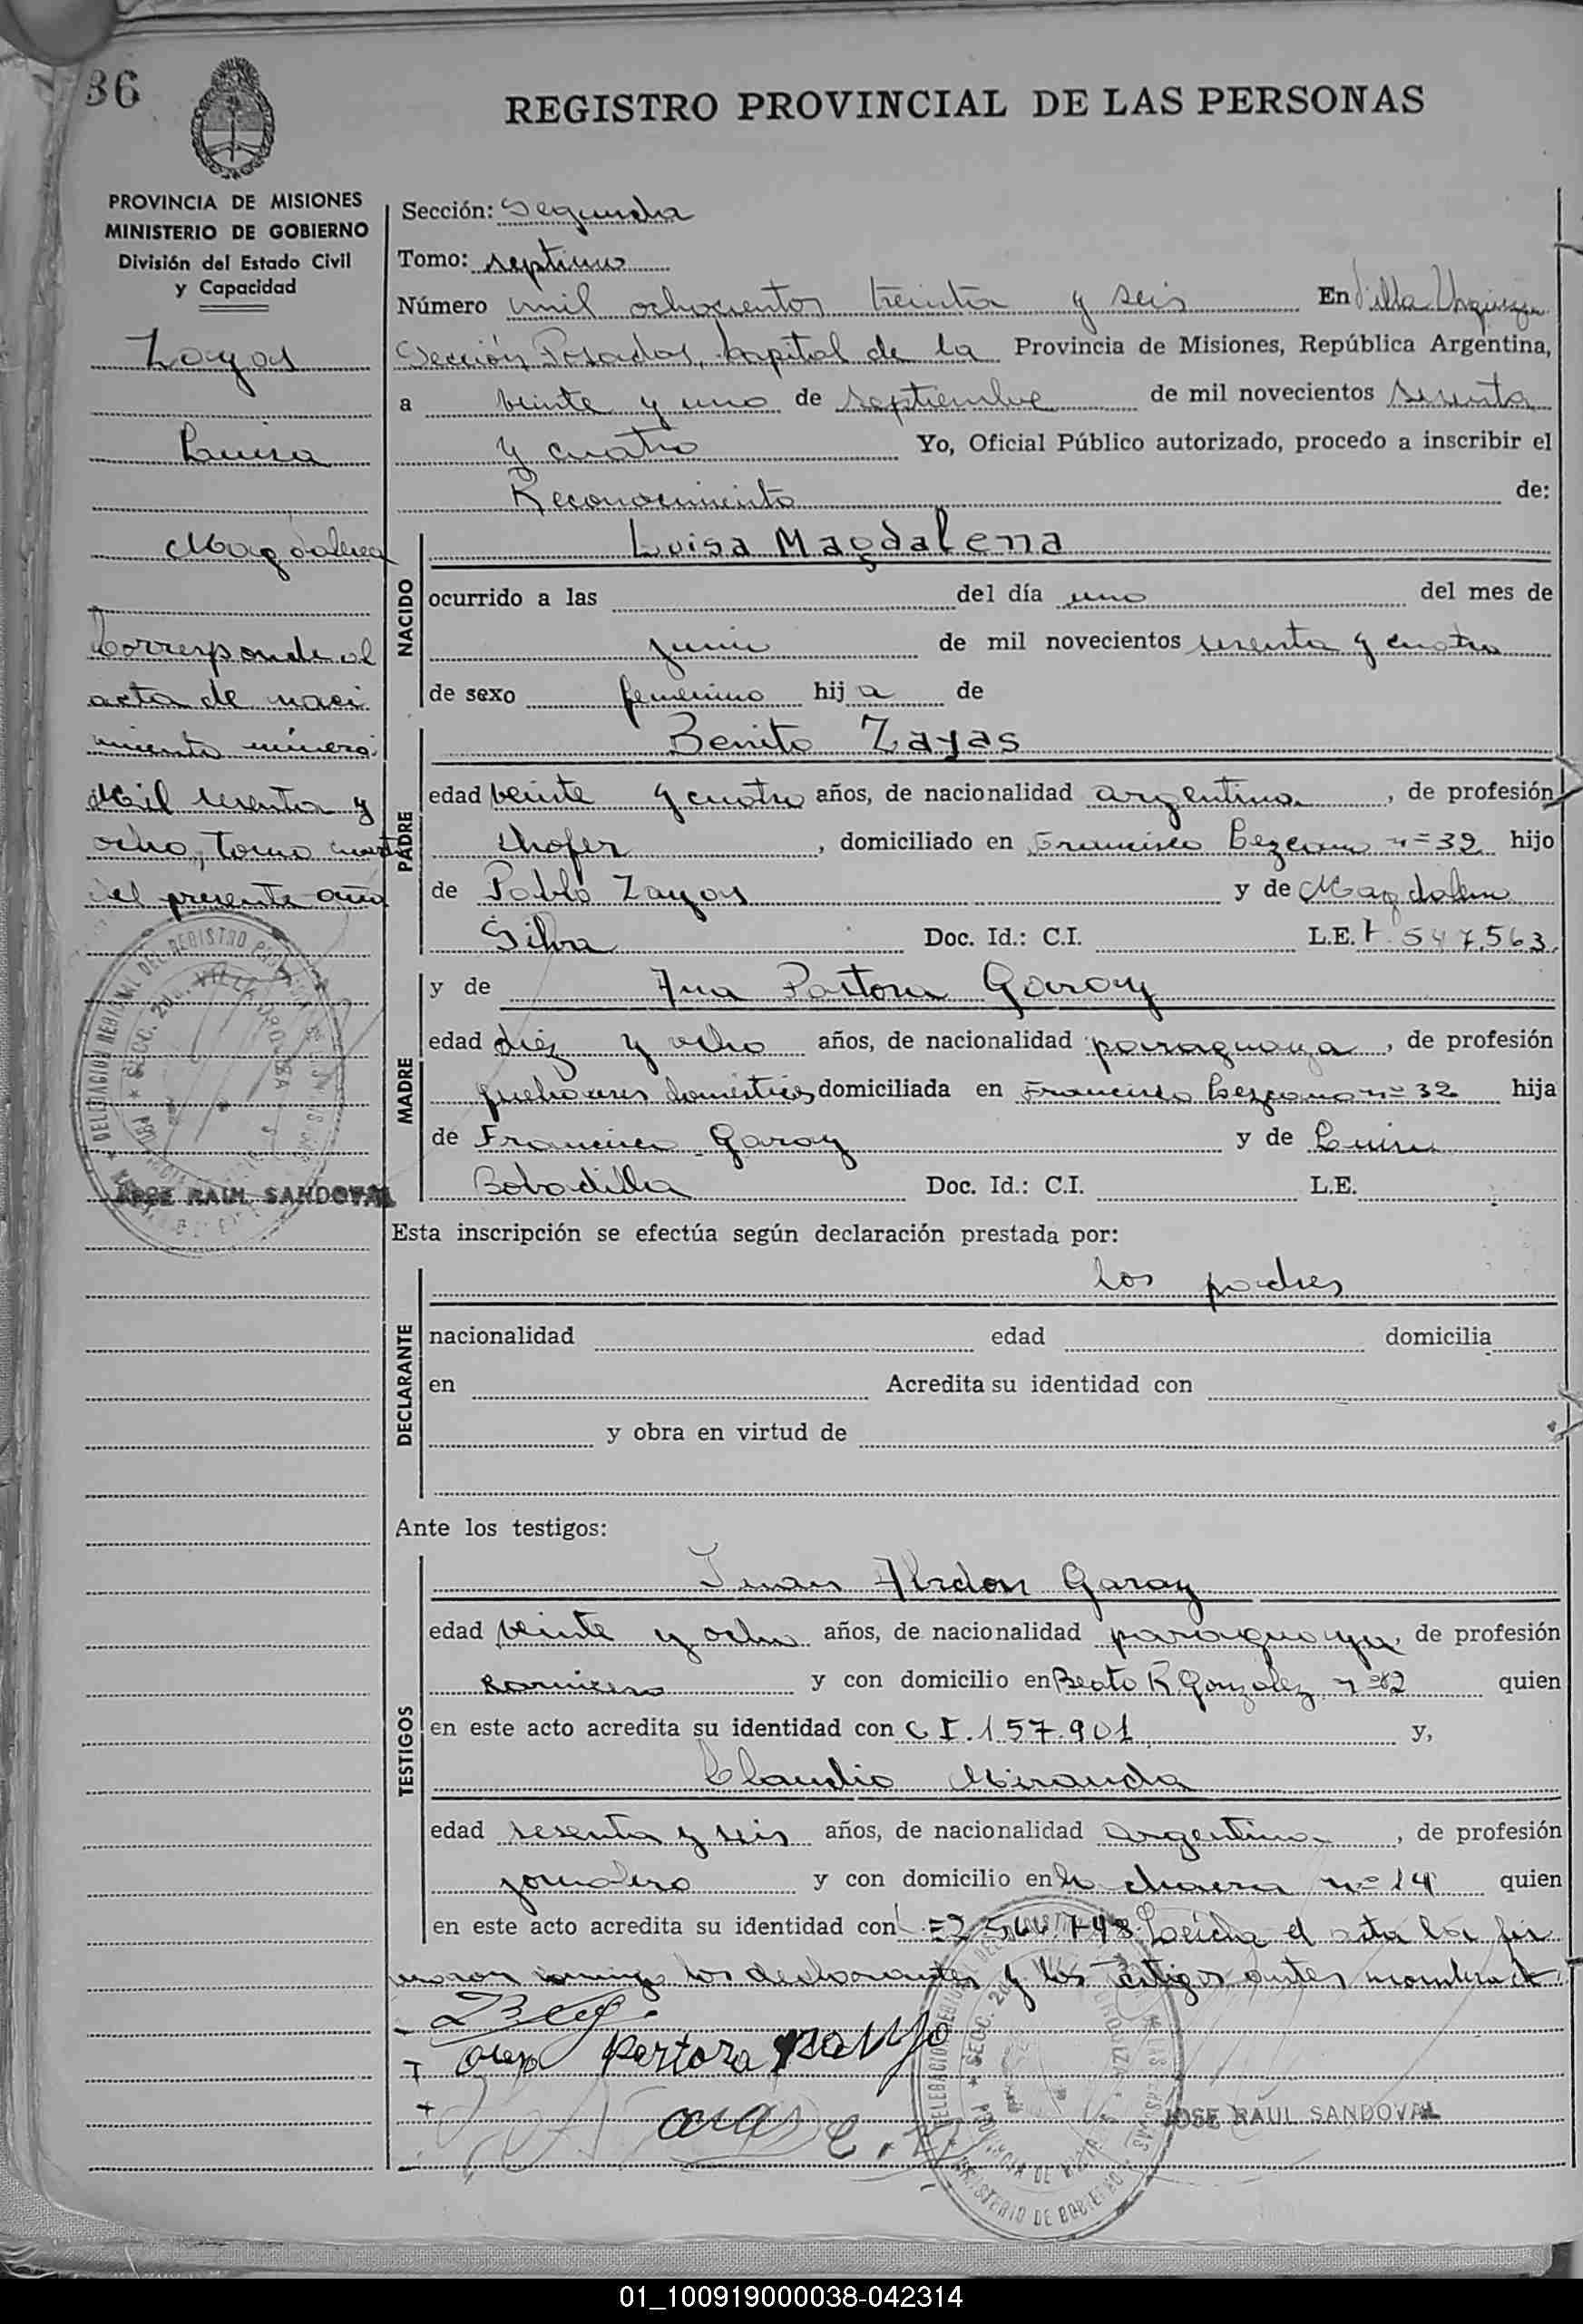 36
REGISTRO PROVINCIAL DE LAS PERSONAS
PROVINCIA DE MISIONES
MINISTERIO DE GOBIERNO
División del Estado Civil
y Capacidad
Zayas
Luisa
Magdalena
Corresponde al
acta de naci
miento número
Mil sesenta y
ocho, Tomo cuarto
del presente año
JOSE RAUL SANDOVAL
Sección: Segunda
Tomo: septimo
Número mil ochocientos treinta y seis En Villa Urquiza
Sección Posadas, Capital de la Provincia de Misiones, República Argentina,
a veinte y uno de septiembre de mil novecientos sesenta
y cuatro Yo, Oficial Público autorizado, procedo a inscribir el
Reconocimiento de:
NACIDO
Luisa Magdalena
ocurrido a las del día uno del mes de
junio de mil novecientos sesenta y cuatro
de sexo femenino hija de
PADRE
Benito Zayas
edad veinte y cuatro años, de nacionalidad argentina, de profesión
chofer, domiciliado en Francisco n=32 hijo
de Pablo Zayas y de Magdalena
Silva Doc. Id.: C.I. L.E. 547.563
MADRE
y de Ana Pastora Garay
edad diez y ocho años, de nacionalidad paraguaya, de profesión
quehaceres domésticos domiciliada en Francisco n=32 hija
de Francisco Garay y de Luisa
Bobadilla Doc. Id.: C.I. L.E.
Esta inscripción se efectúa según declaración prestada por:
DECLARANTE
los padres
nacionalidad edad domicilia
en Acredita su identidad con
y obra en virtud de
Ante los testigos:
TESTIGOS
Juan Abdon Garay
edad veinte y ocho años, de nacionalidad paraguaya, de profesión
carnicero y con domicilio en Beato R. Gonzalez quien
en este acto acredita su identidad con C I. 157.901 y,
Claudio Miranda
edad sesenta y seis años, de nacionalidad Argentina, de profesión
jornalero y con domicilio en la chacra n=14 quien
en este acto acredita su identidad con Leida el acta la fir
maron conmigo los declarantes y los testigos antes nombrados
Pastora
JOSE RAUL SANDOVAL
01_100919000038-042314